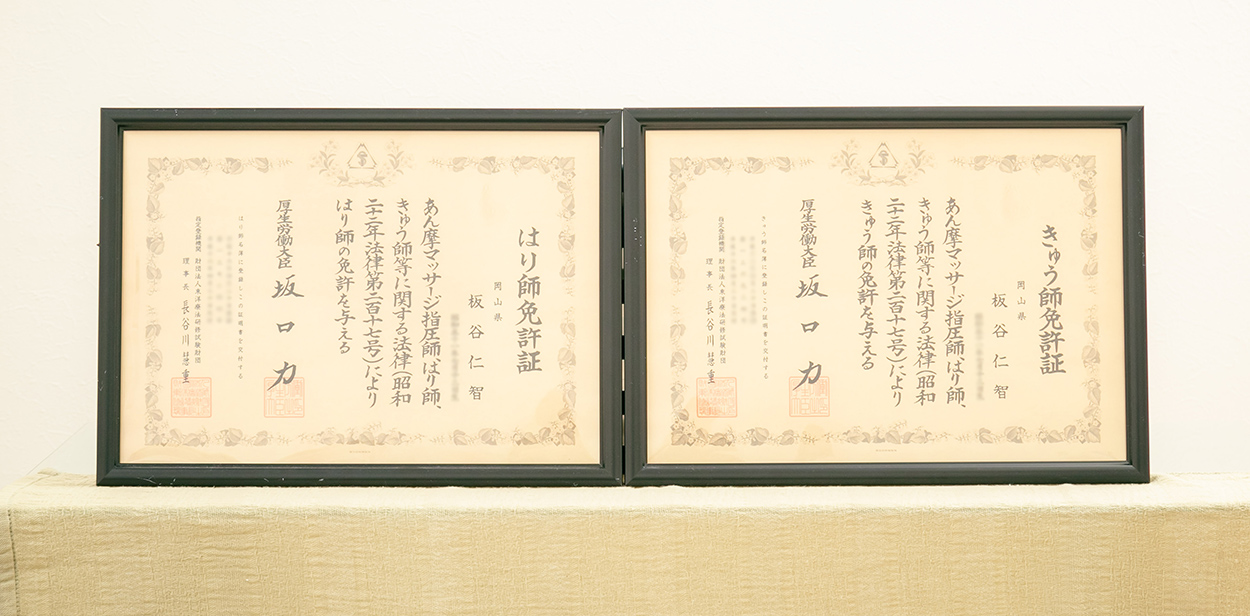 はり師免許証
岡山県
板谷仁智
あん摩マッサージ指圧師、はり師、
きゅう師等に関する法律(昭和
二十二年法律第二百十七号)により
はり師の免許を与える
厚生労働大臣 坂口力
はり師名簿に登録しこの証明書を交付する
指定登録機関 財団法人東洋療法研修試験財団
理事長 長谷川慧重
きゅう師免許証
岡山県
板谷仁智
あん摩マッサージ指圧師、はり師、
きゅう師等に関する法律(昭和
二十二年法律第二百十七号)により
きゅう師の免許を与える
厚生労働大臣 坂口力
きゅう師名簿に登録しこの証明書を交付する
指定登録機関 財団法人東洋療法研修試験財団
理事長 長谷川慧重